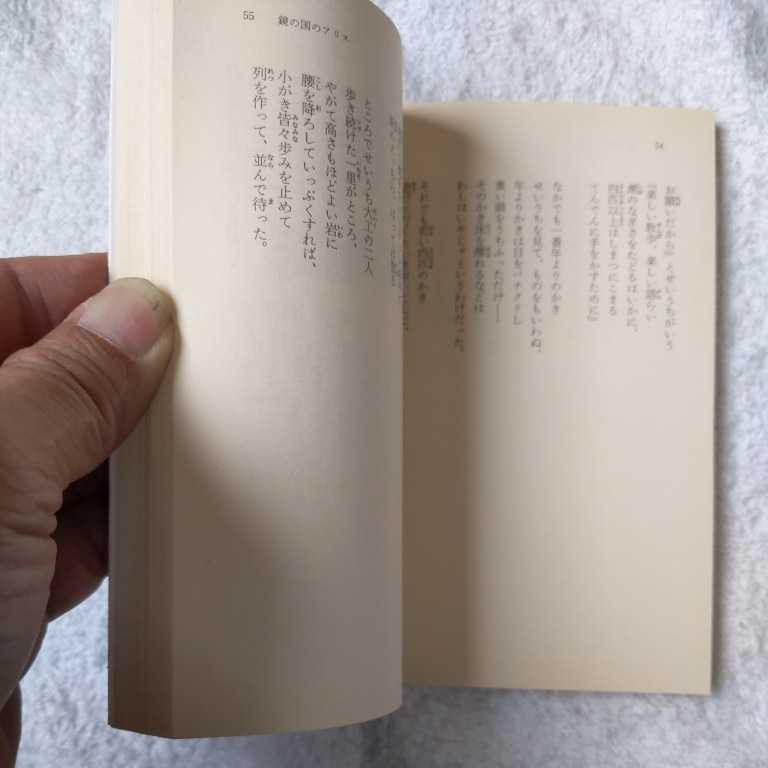 54
お願いだから』とせいうちがいう
『楽しい散歩、楽しい語らい
潮のなぎさをたどるはいかに。
四匹以上はしまつにこまる
てんでんに手をかすために』
なかでも一番年よりのかき
せいうちを見て、ものをもいわぬ、
年よりかきは目をパチクリし
重い頭をうちふっただけ――
そのかき床を離れるなどは
わしはいやじゃというわけだった。
それでも若い四匹のかき
55 鏡の国のアリス
ところでせいうち大工の二人
歩き続けた一里がところ、
やがて高さもほどよい岩に
腰を降ろしていっぷくすれば、
小がき皆々歩みを止めて
列を作って、並んで待った。